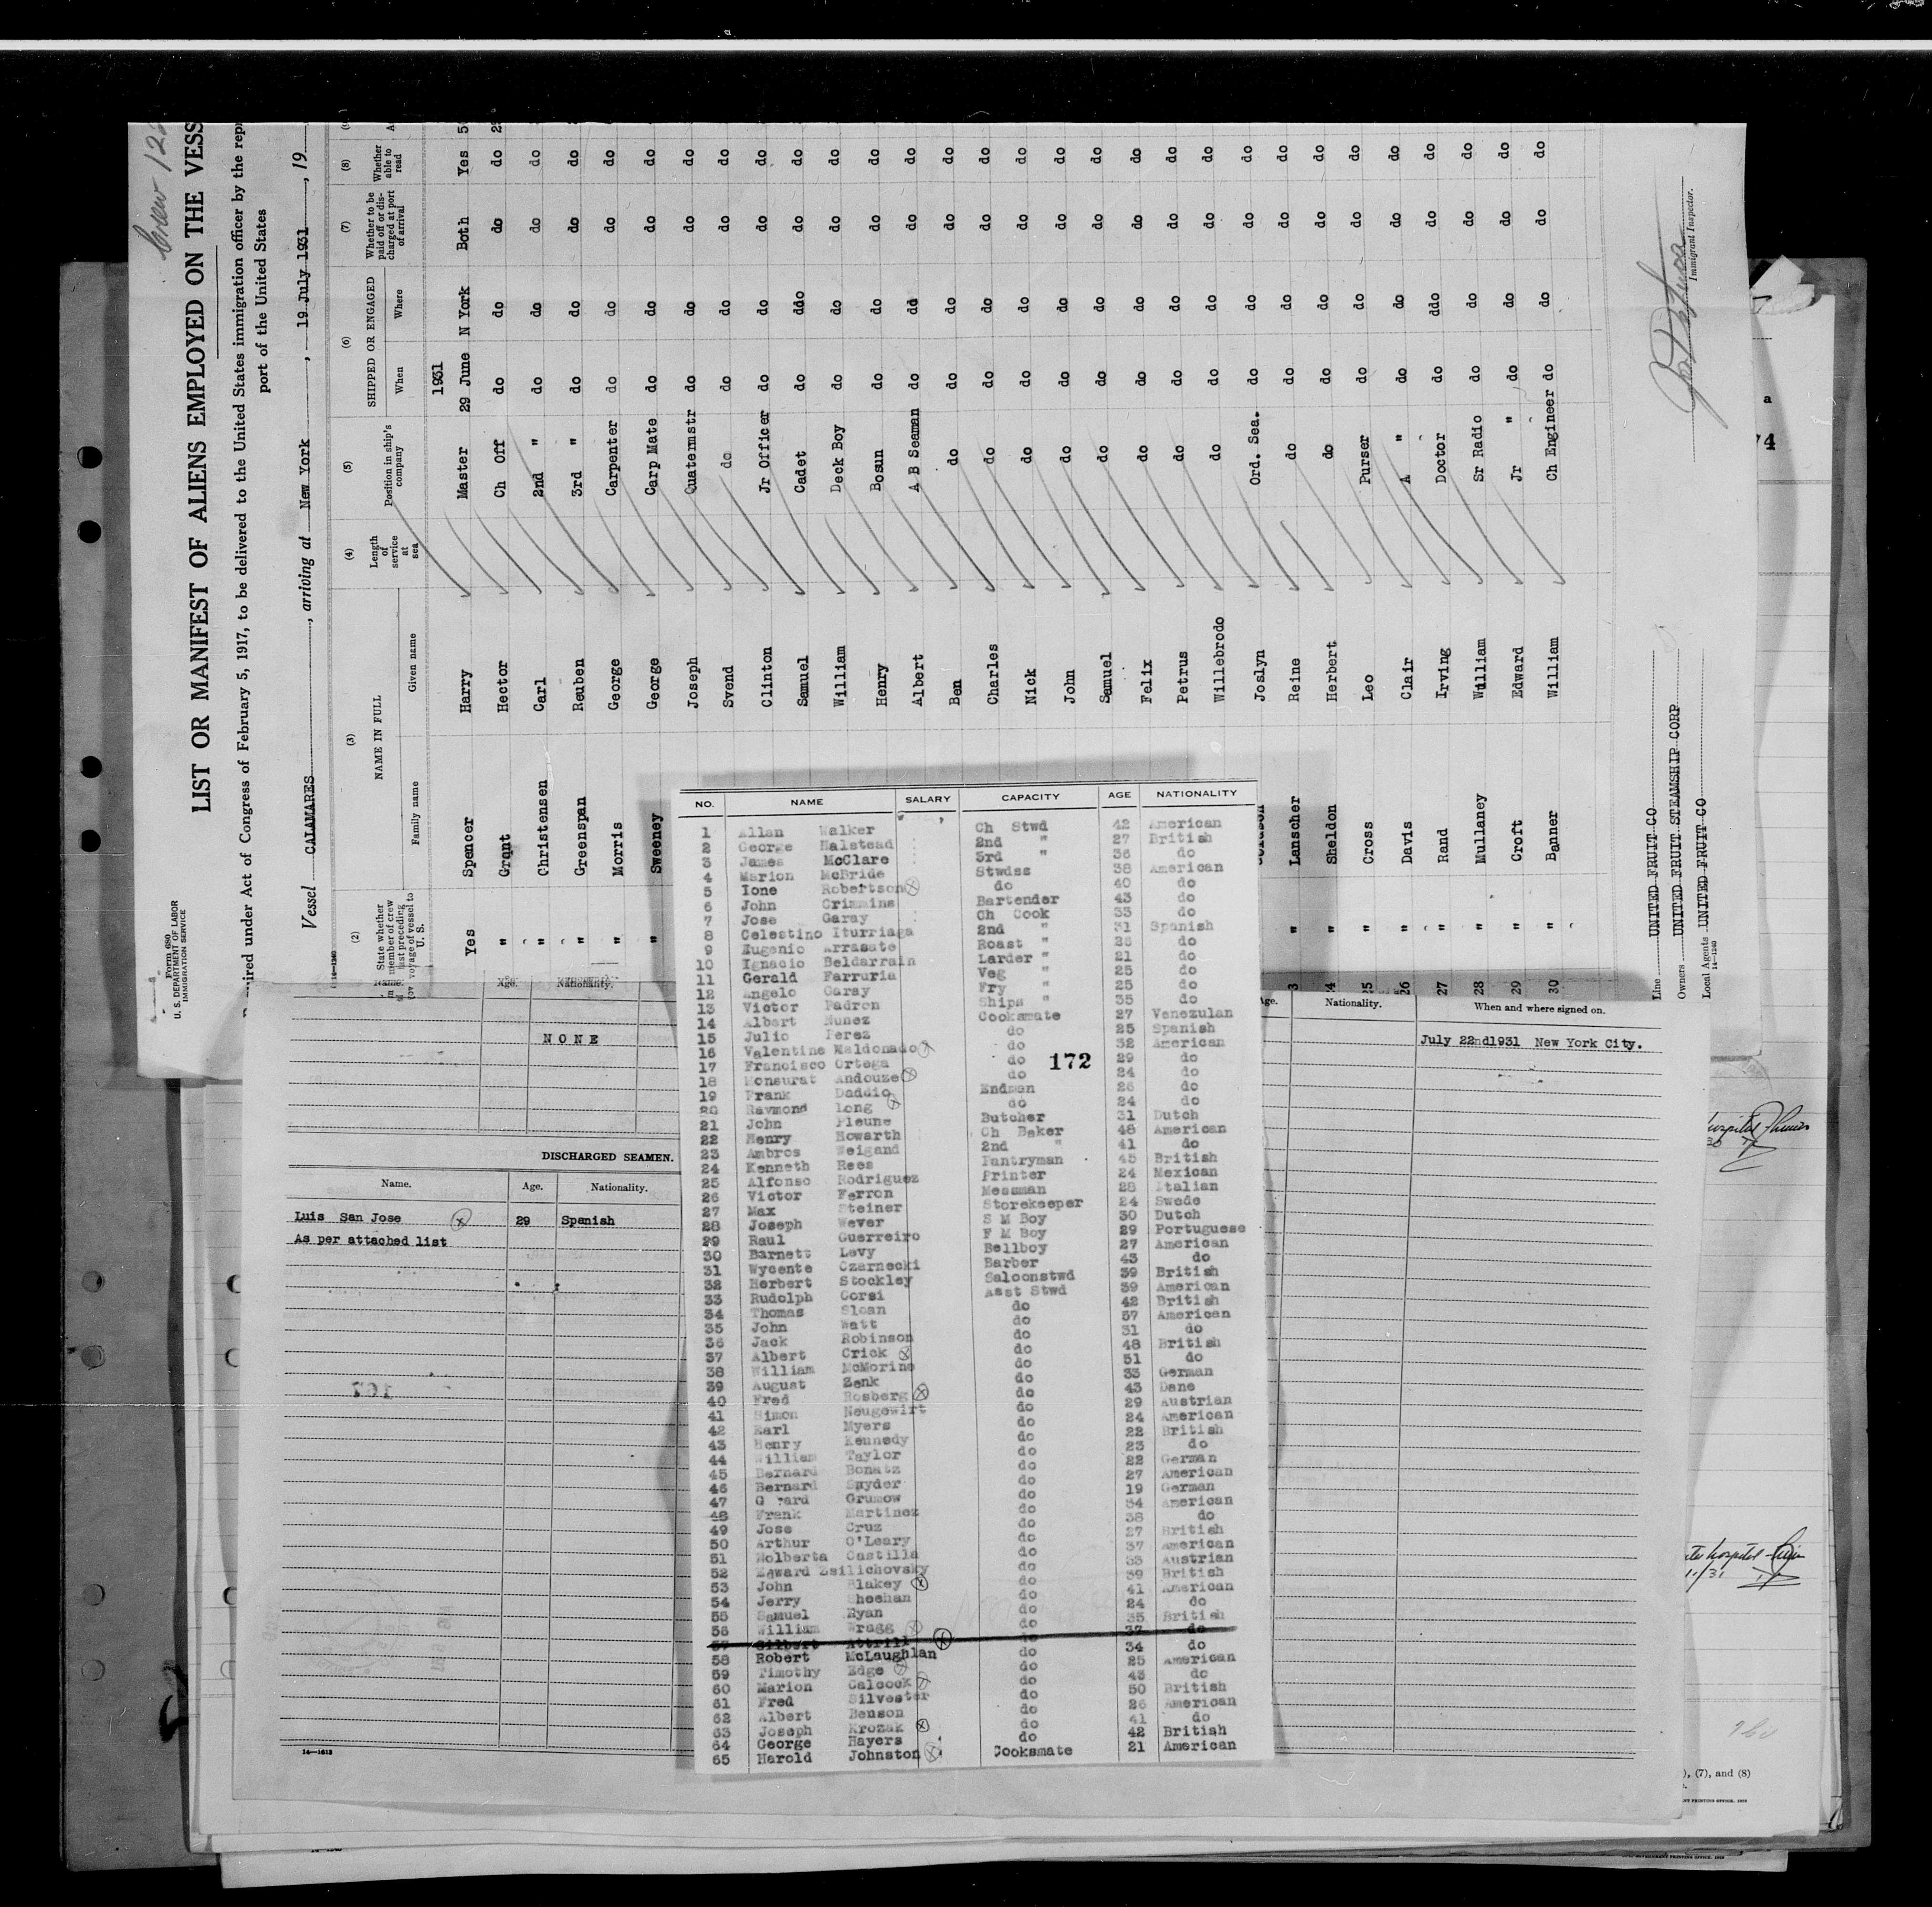 Form 680
U. S. DEPARTMENT OF LABOR
IMMIGRATION SERVICE
Crew 122
LIST OR MANIFEST OF ALIENS EMPLOYED ON THE VESS
ired under Act of Congress of February 5, 1917, to be delivered to the United States immigration officer by the repr
port of the United States
Vessel CALAMARES, arriving at New York, 19 July 1931, 19
(2) (3) (4) (5) (6) (7) (8)
State whether member of crew last preceding voyage of vessel to U. S.
NAME IN FULL
Family name Given name
Length of service at sea
Position in ship's company
SHIPPED OR ENGAGED
When Where
Whether to be paid off or discharged at port of arrival
Whether able to read
1931
Yes Spencer Harry Master 29 June N York Both Yes
" Grant Hector Ch Off do do do do
" Christensen Carl 2nd " do do do do
" Greenspan Reuben 3rd " do do do do
" Morris George Carpenter do do do do
" Sweeney George Carp Mate do do do do
Joseph Quatermstr do do do do
Svend do do do do do
Clinton Jr Officer do do do do
Samuel Cadet do ddo do do
William Deck Boy do do do do
Henry Bosun do do do do
Albert A B Seaman do dd do do
Ben do do do do do
Charles do do do do do
Nick do do do do do
John do do do do do
Samuel do do do do do
Felix do do do do do
Petrus do do do do do
Willebrodo do do do do do
Joslyn Ord. Sea. do do do do
3 " Lanscher Reine do do do do do
4 " Sheldon Herbert do do do do do
25 " Cross Leo Purser do do do do
26 " Davis Clair A " do do do do
27 " Rand Irving Doctor do ddo do do
28 " Mullaney William Sr Radio do do do do
29 " Croft Edward Jr " do do do do
30 " Banner William Ch Engineer do do do do
Line UNITED FRUIT CO
Owners UNITED FRUIT STEAMSHIP CORP
Local Agents UNITED FRUIT CO
14—1240
Immigrant Inspector.
NO. NAME SALARY CAPACITY AGE NATIONALITY
1 Allan Walker Ch Stwd 42 American
2 George Halstead 2nd " 27 British
3 James McClare 3rd " 36 do
4 Marion McBride Stwdss 38 American
5 Ione Robertson do 40 do
6 John Crimmins Bartender 43 do
7 Jose Garay Ch Cook 33 do
8 Celestino Iturriaga 2nd " 31 Spanish
9 Eugenio Arrasate Roast " 26 do
10 Ignacio Beldarrain Larder " 21 do
11 Gerald Farruria Veg " 25 do
12 Angelo Garay Fry " 25 do
13 Victor Padron Ships " 35 do
14 Albert Nunez Cooksmate 27 Venezulan
15 Julio Perez do 25 Spanish
16 Valentine Maldonado do 32 American
17 Francisco Ortega do 29 do
172
18 Monsurat Andouze do 24 do
19 Frank Daddio Endman 26 do
20 Raymond Long do 24 do
21 John Pleune Butcher 31 Dutch
22 Henry Howarth Ch Baker 48 American
23 Ambros Weigand 2nd " 41 do
24 Kenneth Rees Pantryman 45 British
25 Alfonso Rodriguez Printer 24 Mexican
26 Victor Ferron Messman 28 Italian
27 Max Steiner Storekeeper 24 Swede
28 Joseph Wever S M Boy 30 Dutch
29 Raul Guerreiro F M Boy 29 Portuguese
30 Barnett Levy Bellboy 27 American
31 Wycente Czarnecki Barber 43 do
32 Herbert Stockley Saloonstwd 39 British
33 Rudolph Corsi Asst Stwd 39 American
34 Thomas Sloan do 42 British
35 John Watt do 57 American
36 Jack Robinson do 31 do
37 Albert Crick do 48 British
38 William McMorine do 51 do
39 August Zenk do 33 German
40 Fred Rosberg do 43 Dane
41 Simon Neugewirt do 29 Austrian
42 Earl Myers do 24 American
43 Henry Kennedy do 22 British
44 William Taylor do 23 do
45 Bernard Bonatz do 22 German
46 Bernard Snyder do 27 American
47 G rard Grumow do 19 German
48 Frank Martinez do 34 American
49 Jose Cruz do 38 do
50 Arthur O'Leary do 27 British
51 Molberta Castilla do 37 American
52 Edward Zsilichovsky do 33 Austrian
53 John Blakey do 39 British
54 Jerry Sheehan do 41 American
55 Samuel Ryan do 24 do
56 William Wragg do 35 British
57 Gilbert Attrill do 37 do
58 Robert McLaughlan do 34 do
59 Timothy Edge do 25 American
60 Marion Calcock do 43 do
61 Fred Silvester do 50 British
62 Albert Benson do 26 American
63 Joseph Krozak do 41 do
64 George Hayers do 42 British
65 Harold Johnston Cooksmate 21 American
Name. Age. Nationality.
NONE
Age. Nationality. When and where signed on.
July 22nd1931 New York City.
DISCHARGED SEAMEN.
Name. Age. Nationality.
Luis San Jose 29 Spanish
As per attached list
14—1613
74
), (7), and (8)